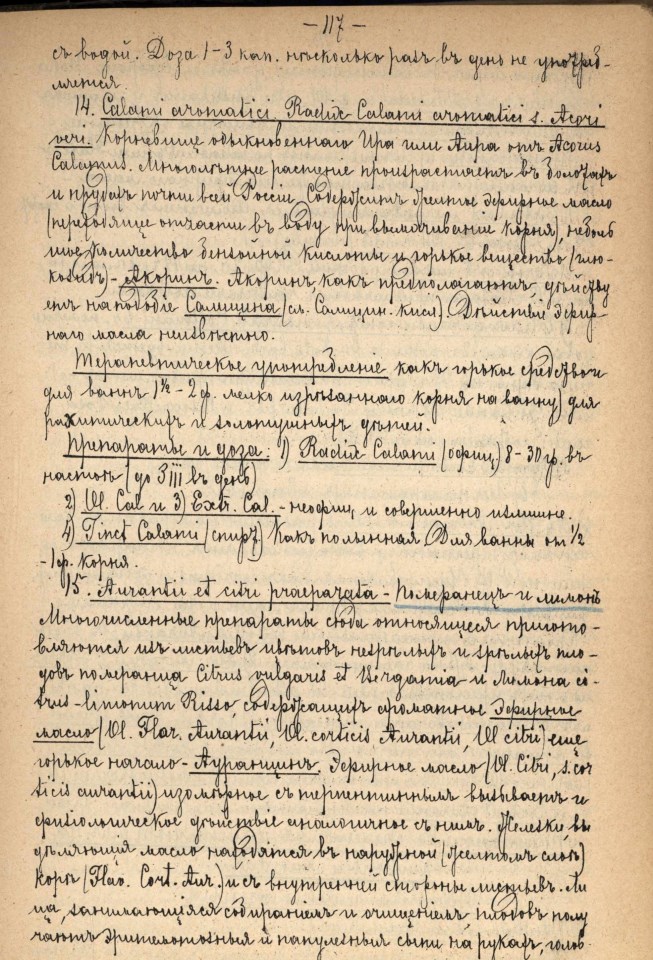 — 117 —
съ водой. Доза 1–3 кап. нѣсколько разъ въ день не употреб-
ляется.
14. Calami aromatici. Radix Calami aromatici s. Acori
veri. Корневище обыкновеннаго Ира или Аира отъ Acorus
Calamus. Многолѣтнее растение произрастаетъ въ болотахъ
и прудахъ почти всей Россіи. Содержитъ желтое эфирное масло
(переходящее отчасти въ воду при вымачиваніе корня), неболь
шое количество бензойной кислоты и горькое вещество (глю-
козидъ) - Акоринъ. Акоринъ, какъ предполагаютъ, дѣйству
етъ наподобіе Салицина (см. Салицин. кисл.). Дѣйствіе эфир-
наго масла неизвѣстно.
Терапевтическое употребленіе какъ горькое средство и
для ваннъ 1½ – 2 ф. мелко изрѣзаннаго корня на ванну) для
рахитическихъ и золотушныхъ дѣтей.
Препараты и доза: 1) Radix Calami (офиц.) 8–30 гр. въ
настоѣ (до ʒiii въ день)
2) Ol. Cal и 3) Extr. Cal. - неофиц. и совершенно излишне.
4) Tinct Calami (спирт) Какъ полынная. Для ванны от ½
- 1 ф. корня.
15. Aurantii et citri praeparata - Померанецъ и лимонъ
Многочисленные препараты сюда относящіеся пригото-
вляются изъ листьевъ цвѣтовъ незрѣлыхъ и зрѣлыхъ пло-
довъ померанца Citrus vulgaris et Bergamia и Лимона ci-
trus-limonum Risso, содержащихъ ароматное Эфирное
масло (Ol. Flor. Aurantii, Ol. corticis Aurantii, Ol citri) еще
горькое начало - Ауранцинъ. Эфирное масло (Ol. Citri, s. cor
ticis aurantii) изомерное съ терпентиннымъ вызываетъ и
физіологическое дѣйствіе аналогичное съ нимъ. Железки, вы
дѣляющія масло находятся въ наружной (желтомъ слоѣ)
корѣ (Flav. Cort. Aur.) и съ внутренней стороны листьевъ. Ли
ца, занимающіяся собираніемъ и очищеніемъ плодовъ полу
чаютъ эритематозныя и папулезныя сыпи на рукахъ, голов-